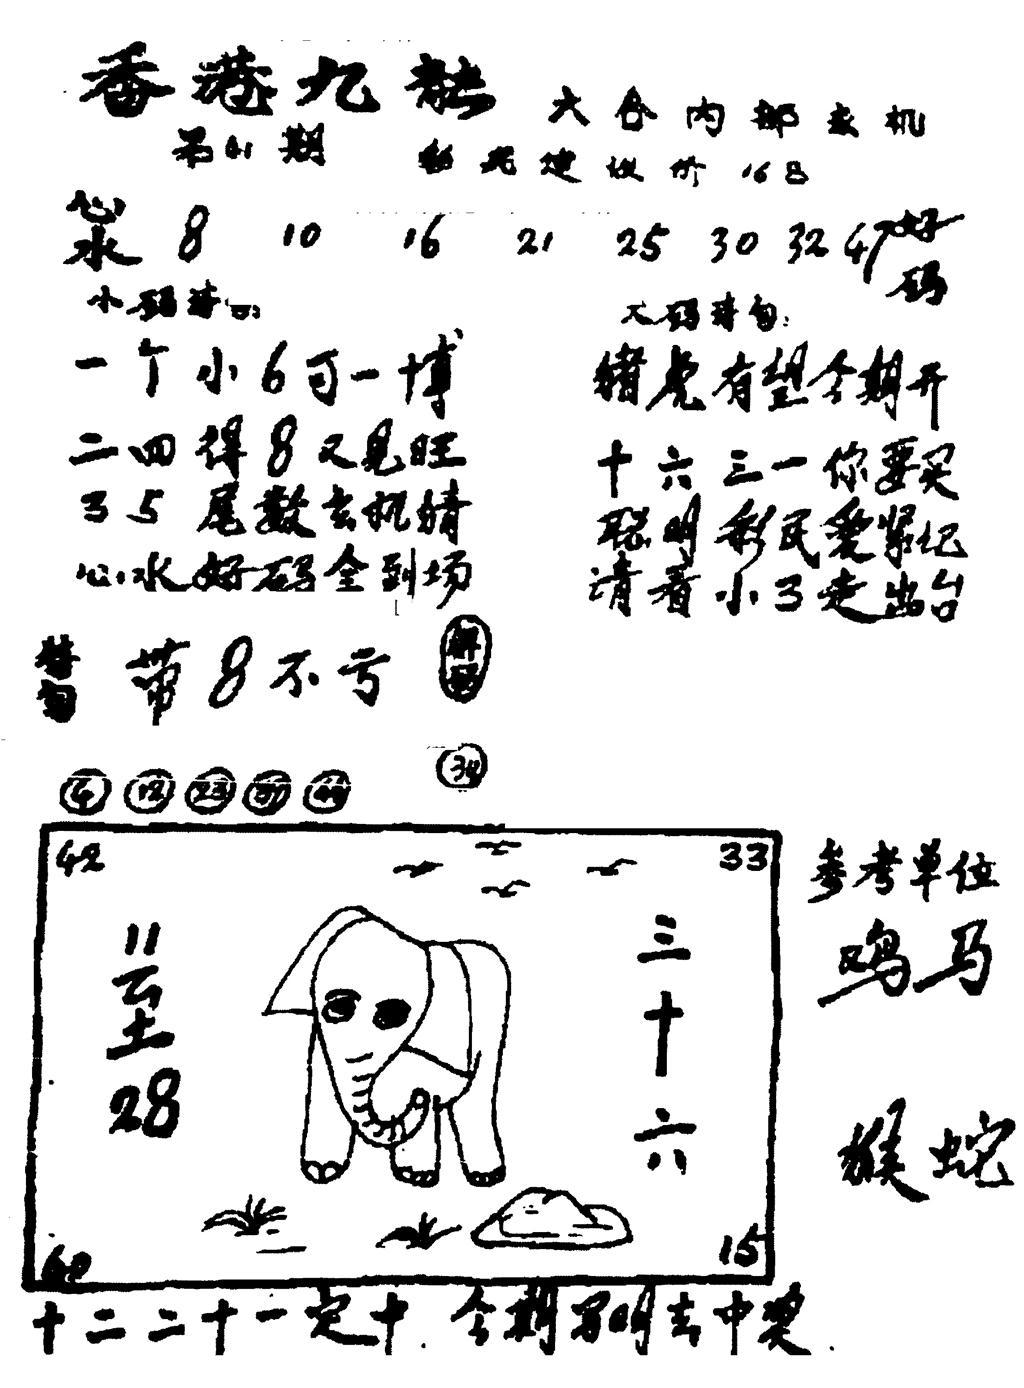 香港九龙
六合内部玄机
第61期
彩民建议价168
心水 8 10 16 21 25 30 32 47 好码
小码诗句:
一个小6可一博
二四得8又见旺
35尾数玄机猜
心水好码全到场
大码诗句:
猪虎有望今期开
十六三一你要买
聪明彩民要紧记
请看小3走出台
特句 带8不亏
解码
34
12 23
42 33
28
三十六
15
参考单位
鸡马
猴蛇
十二二十一定中 今期买明去中奖